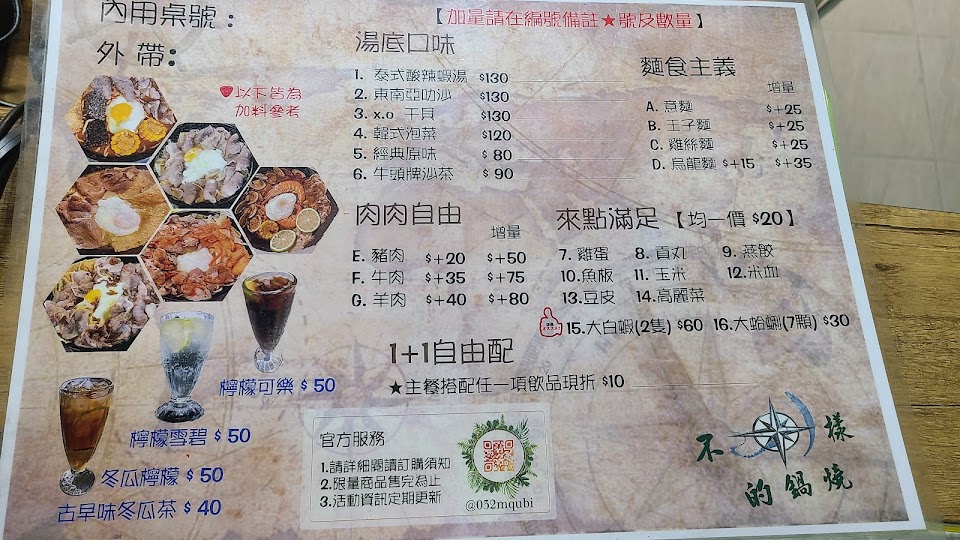 內用桌號：
外 帶：
以下皆為
加料參考
【加量請在編號備註★號及數量】
湯底口味
1. 泰式酸辣蝦湯 $130
2. 東南亞叻沙 $130
3. x.o 干貝 $130
4. 韓式泡菜 $120
5. 經典原味 $ 80
6. 牛頭牌沙茶 $ 90
麵食主義
增量
A. 意麵 $+25
B. 王子麵 $+25
C. 雞絲麵 $+25
D. 烏龍麵 $+15 $+35
肉肉自由
增量
E. 豬肉 $+20 $+50
F. 牛肉 $+35 $+75
G. 羊肉 $+40 $+80
來點滿足【均一價 $20】
7. 雞蛋 8. 貢丸 9. 燕餃
10.魚板 11. 玉米 12.米血
13.豆皮 14.高麗菜
15.大白蝦(2隻) $60 16.大蛤蜊(7顆) $30
1+1自由配
★主餐搭配任一項飲品現折 $10
檸檬可樂 $ 50
檸檬雪碧 $ 50
冬瓜檸檬 $ 50
古早味冬瓜茶 $ 40
官方服務
1.請詳細閱讀訂購須知
2.限量商品售完為止
3.活動資訊定期更新
@032mqubi
不 樣
的鍋燒